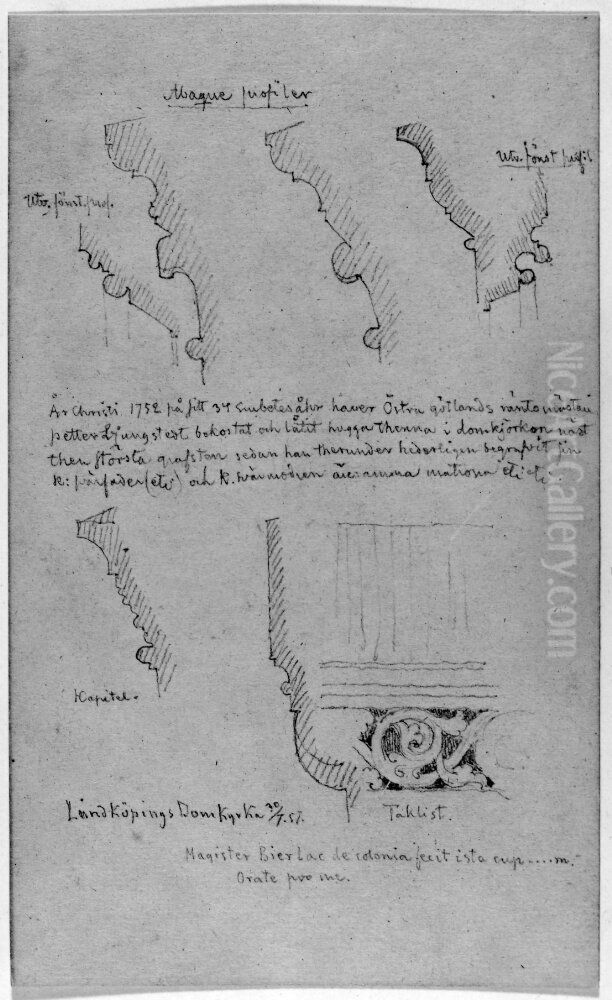 Abaque profiler
Utv. fönst. profil
Utv. fönst. prof.
År Christi 1752 på sitt 34 Embetesåhr hawer Östra götlands räntemästau
petter Ljungstedt bekostat och låtit hugga thenna i domkjörkon näst
then största grafsten sedan han therunder hederligen begrafvit sin
K: pärfader (etc) och K. svärmodren äre: amma matrona etc etc.
Kapitel.
Lindköpings Domkyrka 30/7.57.
Taklist.
Magister Bierlac de colonia fecit ista cup.....m.
Orate pro me.
Nice-Gallery.com